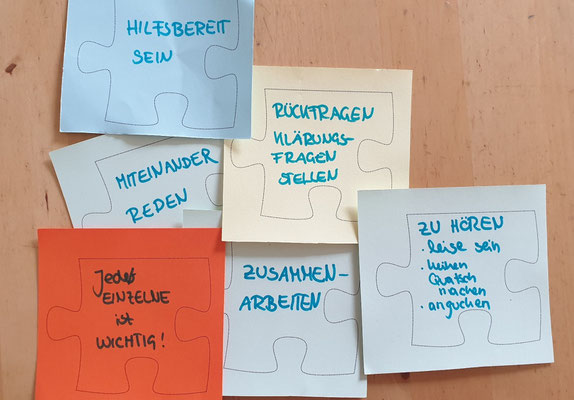 HILFSBEREIT
SEIN
RÜCKFRAGEN
KLÄRUNGS-
FRAGEN
STELLEN
MITEINANDER
REDEN
ZU HÖREN
· leise sein
· keinen
Quatsch
machen
· angucken
Jeder
EINZELNE
ist
WICHTIG!
ZUSAMMEN-
ARBEITEN